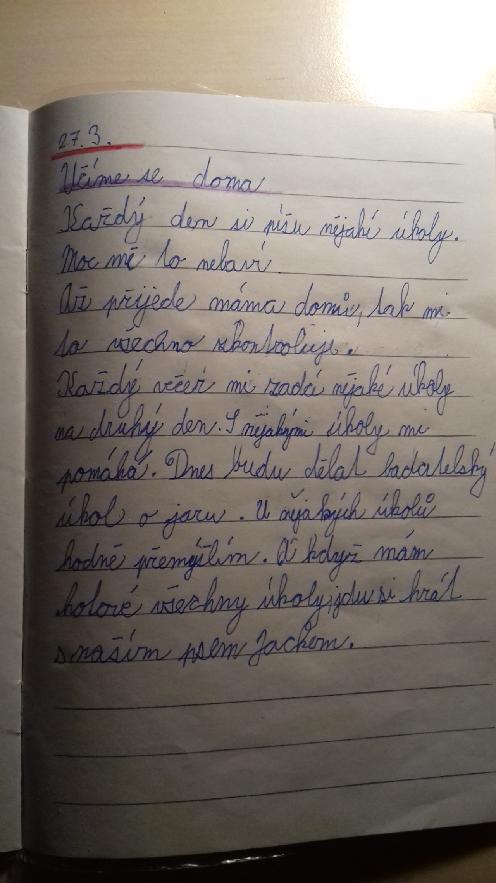 27.3.
Učíme se doma
Každý den si píšu nějaké úkoly.
Moc mě to nebaví.
Až přijede máma domů, tak mi
to všechno zkontroluje.
Každý večer mi zadá nějaké úkoly
na druhý den. S nějakými úkoly mi
pomáhá. Dnes budu dělat badatelský
úkol o jaru. U nějakých úkolů
hodně přemýšlím. A když mám
hotové všechny úkoly, jdu si hrát
s naším psem Jackem.